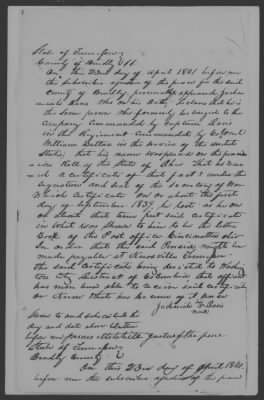 State of Tennessee
County of Bradley SS
On this 23rd day of April 1841 before me
the subscriber a justice of the peace for the said
County of Bradley personally appeared Zachar
Davis who on his Oath, declares that he is
the same person who formerly belonged to the
company commanded by Captain Davis
in the Regiment commanded by Colonel
William in the service of the united
States; that his name was placed on the pen
sion Roll of the State of Ohio that he
a certificate of that fact under the
signature and seal of the Secretary of War
Which Certificate on or about the first
day of September 1837, he lost as he on
or about that time put said certificate
in what was shown to him to be the letter
Box of the Post office Cincinnatti ohio
In order that the said Pension might be
made payable at Knoxville Tennessee
the said Certificate being sent to Washin
ton City District of Columbia that
has never been able to receive said certificate
or know what has become of it since
Davis
mark
Sworn to and subscribed the
day and date above written
before me James justice of the peace
State of Tennessee
Bradley County
On this 23rd day of April 1841
before me the subscriber a justice of the peace